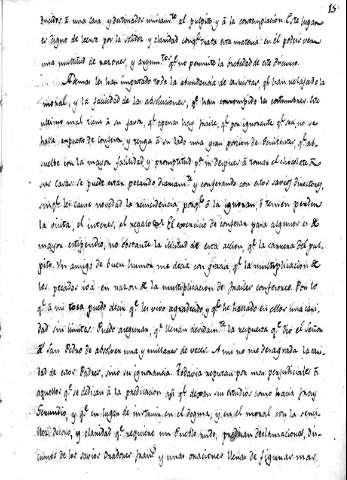 15
ducidos à una cara, y destinados unicam.te al pulpito y à la contemplacion. Este lugar
es digno de leerse por la solidez y claridad con q.e trata esta materia: en el podeis ver
una multitud de razones, y argum.tos q.e no permite la brevedad de este discurso.
Ademas le han imputado toda la abundancia de casuistas, q.e han relaxado la
moral, y la facilidad de las absoluciones, q.e han corrompido las costumbres. Este
ultimo mal tiene à su favor, q.e apenas hay frayle, q.e por ignorante q.e sea, no se
halle expuesto de confesor, y tenga à su lado una gran porcion de penitentes, q.e ab-
suelve con la mayor facilidad y promptitud p.a ir despues à tomar el chocolate à
sus casas: se puede estar pecando diariam.te y confesando con estos sabios directores,
sin q.e les cause novedad la reincidencia, porq.e ò la ignoran, ò temen perder
la visita, el interes, el regalo &c. El exercicio de confesar para algunos es de
mayor estipendio, no obstante la ilicitud de esta accion, q.e la carrera del pul-
pito. Un amigo de buen humor me decia con gracia q.e la multiplicacion de
los pecados iba en razon de la multiplicacion de frailes confesores. Por lo
q.e à mi toca puedo decir q.e les vivo agradecido y q.e he hallado en ellos una cari-
dad sin limites. Puedo asegurar, q.e llenan devidam.te la respuesta q.e dio el Señor
à San Pedro de absolver una y millones de veces. A mi no me desagrada la cari-
dad de estos Padres, sino su ignorancia. Todavia reputan por mas perjudiciales à
aquellos q.e se dedican à la predicacion asi q.e dejan sus estudios como hacia fray
Gerundio, y q.e en lugar de instruir en el dogma, y en el moral con la senci-
llez, decoro, y claridad q.e requiere un Pueblo rudo, predican declamaciones, di-
visiones de los savios oradores franc.s y unas oraciones llenas de figuras mas